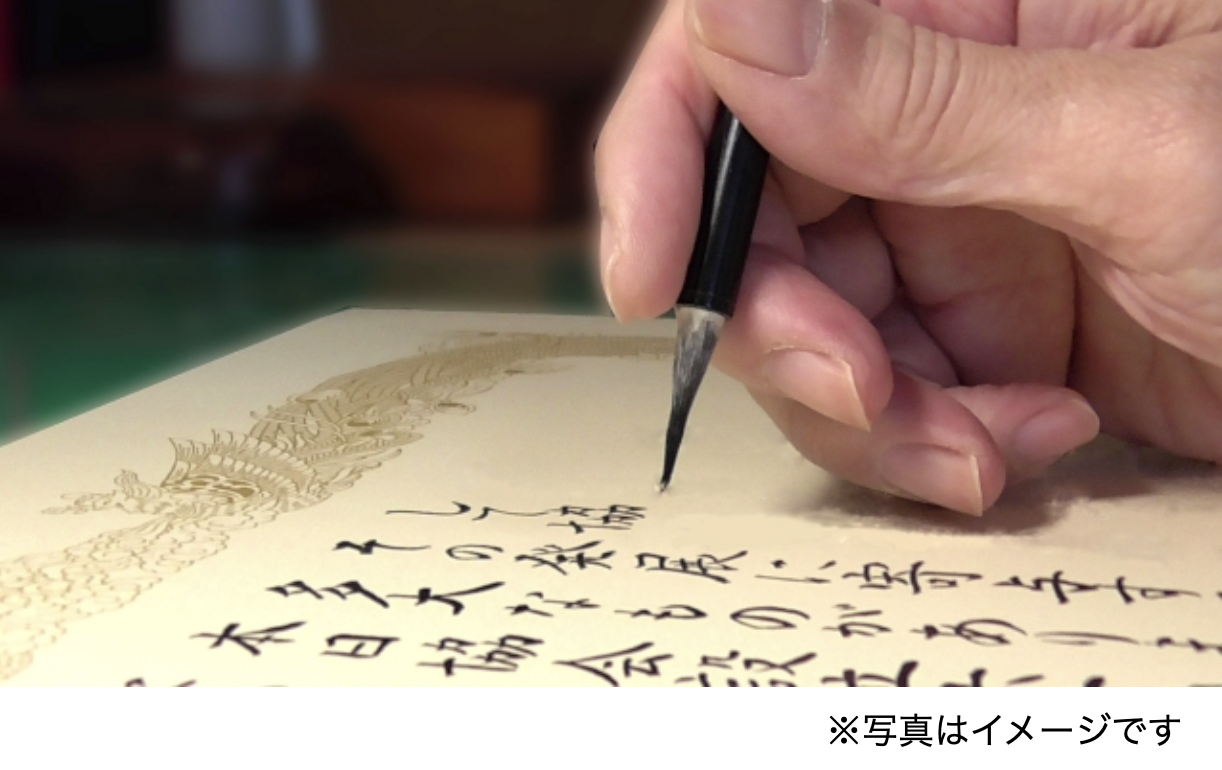 本日協会設立
多大なものがありま
その発展に寄与す
して協
※写真はイメージです